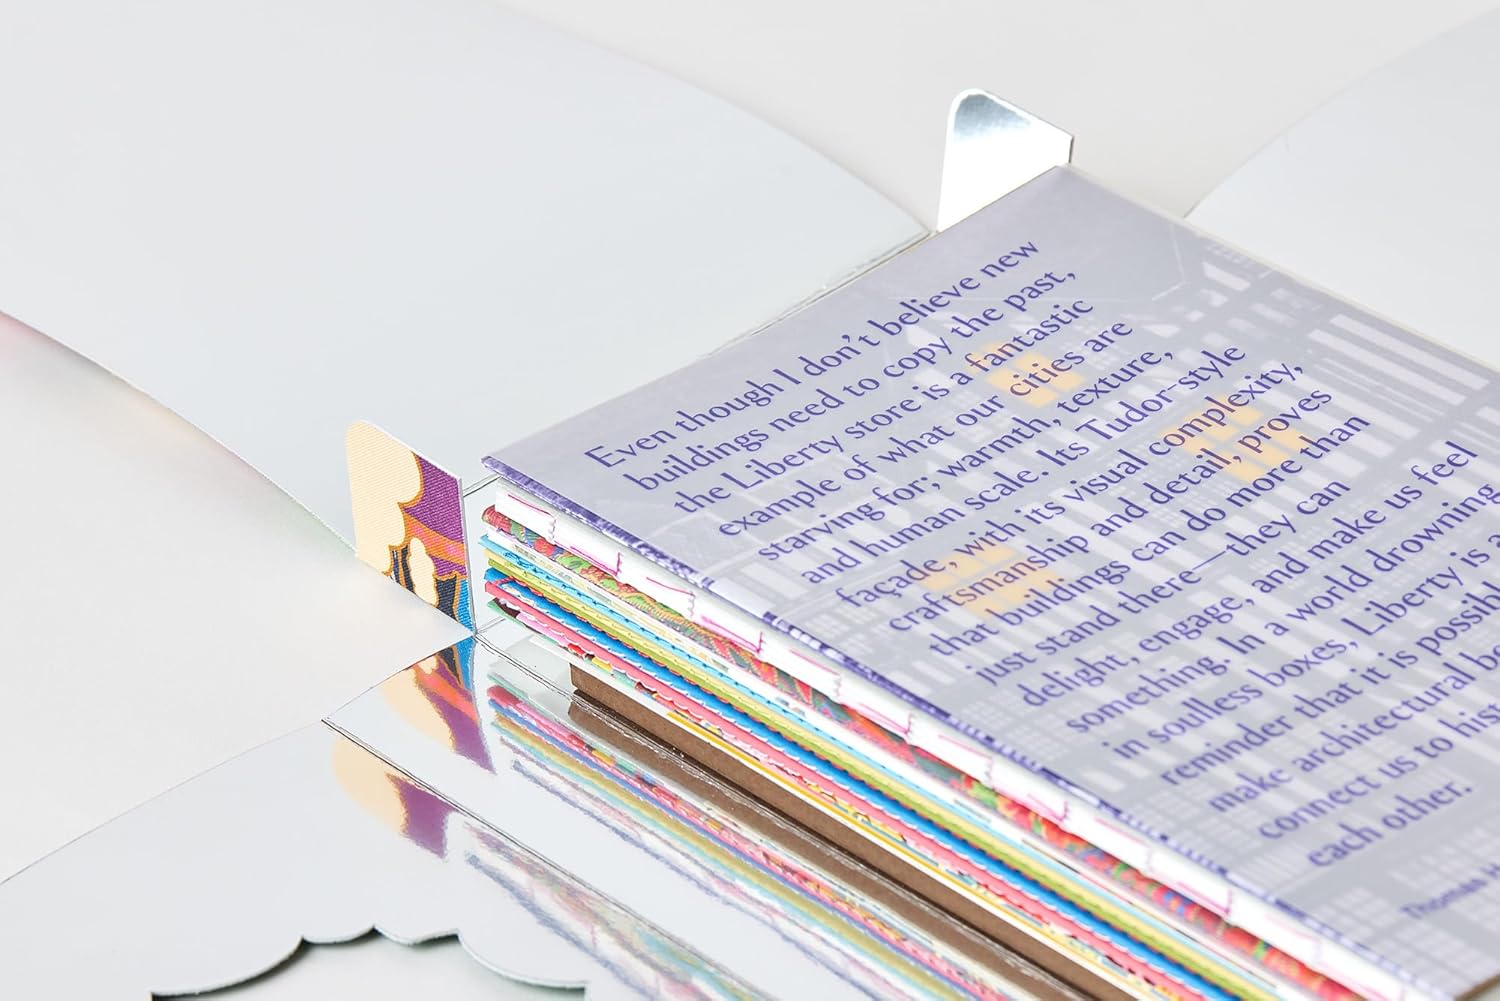 Even though I don't believe new
buildings need to copy the past,
the Liberty store is a fantastic
example of what our cities are
starving for; warmth, texture,
and human scale. Its Tudor-style
façade, with its visual complexity,
craftsmanship and detail, proves
that buildings can do more than
just stand there—they can
delight, engage, and make us feel
something. In a world drowning
in soulless boxes, Liberty is a
reminder that it is possible
make architectural
connect us to
each other.
Thomas